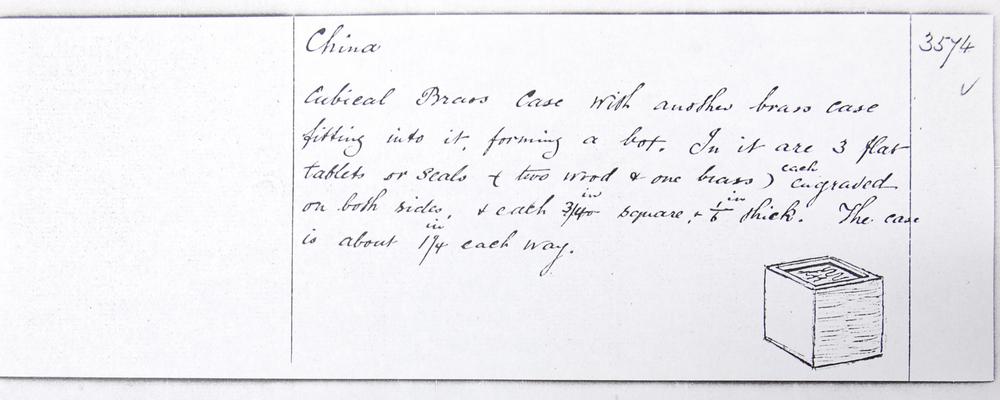 China
3574 ✓
Cubical Brass Case with another brass case
fitting into it, forming a box. In it are 3 flat
tablets or seals ( two wood & one brass ) each engraved
on both sides, & each 3/4 in square, & 1/6 in thick. The case
is about 1 1/4 in each way.